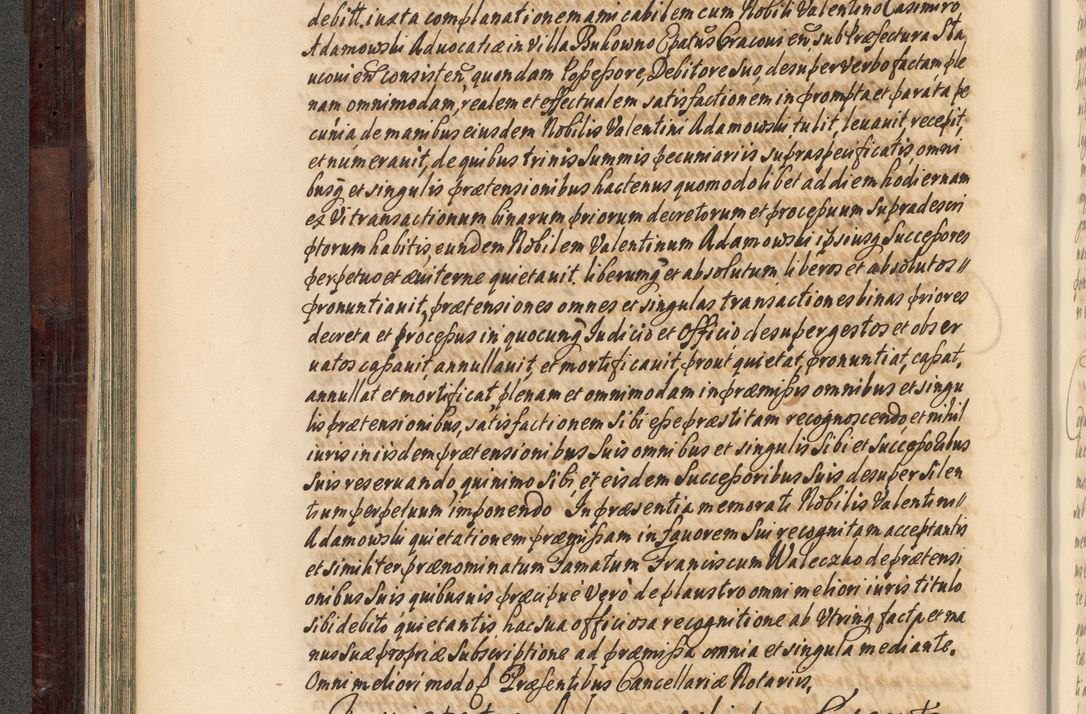 debitt. iuxta complanationem amicabilem cum Nobili Valentino Casimiro
Adamowski Advocatiæ in Villa Bukowno Epatûs Cracovien̄, sub Præfectura Sta
uconien̄ consisten̄, quondam Possessore, Debitore suo desuper verbo factam ple
nam omnimodam, realem et effectualem satisfactionem in prompta et parata pe
cunia, de manibus eiusdem Nobilis Valentini Adamowski tulit, leuauit, recepit,
et numerauit, de quibus trinis summis pecuniariis supraspecificatis, omni
busq̄ et singulis prætensionibus hactenus quomodolibet ad diem hodiernam
ex Vi transactionum binarum priorum decretorum et processuum supradescri
ptorum habitis, eundem Nobilem Valentinum Adamowski ipsiusq̄ Successores
perpetuo et æuiterne quietauit. liberumq̄ et absolutum liberos et absolutos //
pronuntiauit, prætensiones omnes et singulas transactiones binas priores
decreta et processus in quocunq̄ Iudicio et Officio desuper gestos et obser
uatos cassauit, annullauit, et mortificauit, prout quietat, pronuntiat, cassat,
annullat et mortificat, plenam et omnimodam in præmissis omnibus et singu
lis prætensionibus, satisfactionem sibi esse præstitam recognoscendo et nihil
iuris in iisdem prætensionibus suis omnibus et singulis sibi et Successoribus
suis reseruando, quinimo sibi, et eisdem Successoribus suis desuper silen
tium perpetuum imponendo In præsentia memorati Nobilis Valentini //
Adamowski quietationem præmissam in fauorem sui recognitam acceptantis
et similiter prænominatum Famatum Franciscum Waleczko de prætensi
onibus suis quibusuis præcipuè verò de plaustro omni meliori iuris titulo
sibi debito quietantis, hac sua officiosa recognitione ab Utrinq̄ facta et ma
nus suæ propriæ subscriptione ad præmissa omnia et singula mediante.
Omni meliori modo Præsentibus Cancellariæ Notariis,